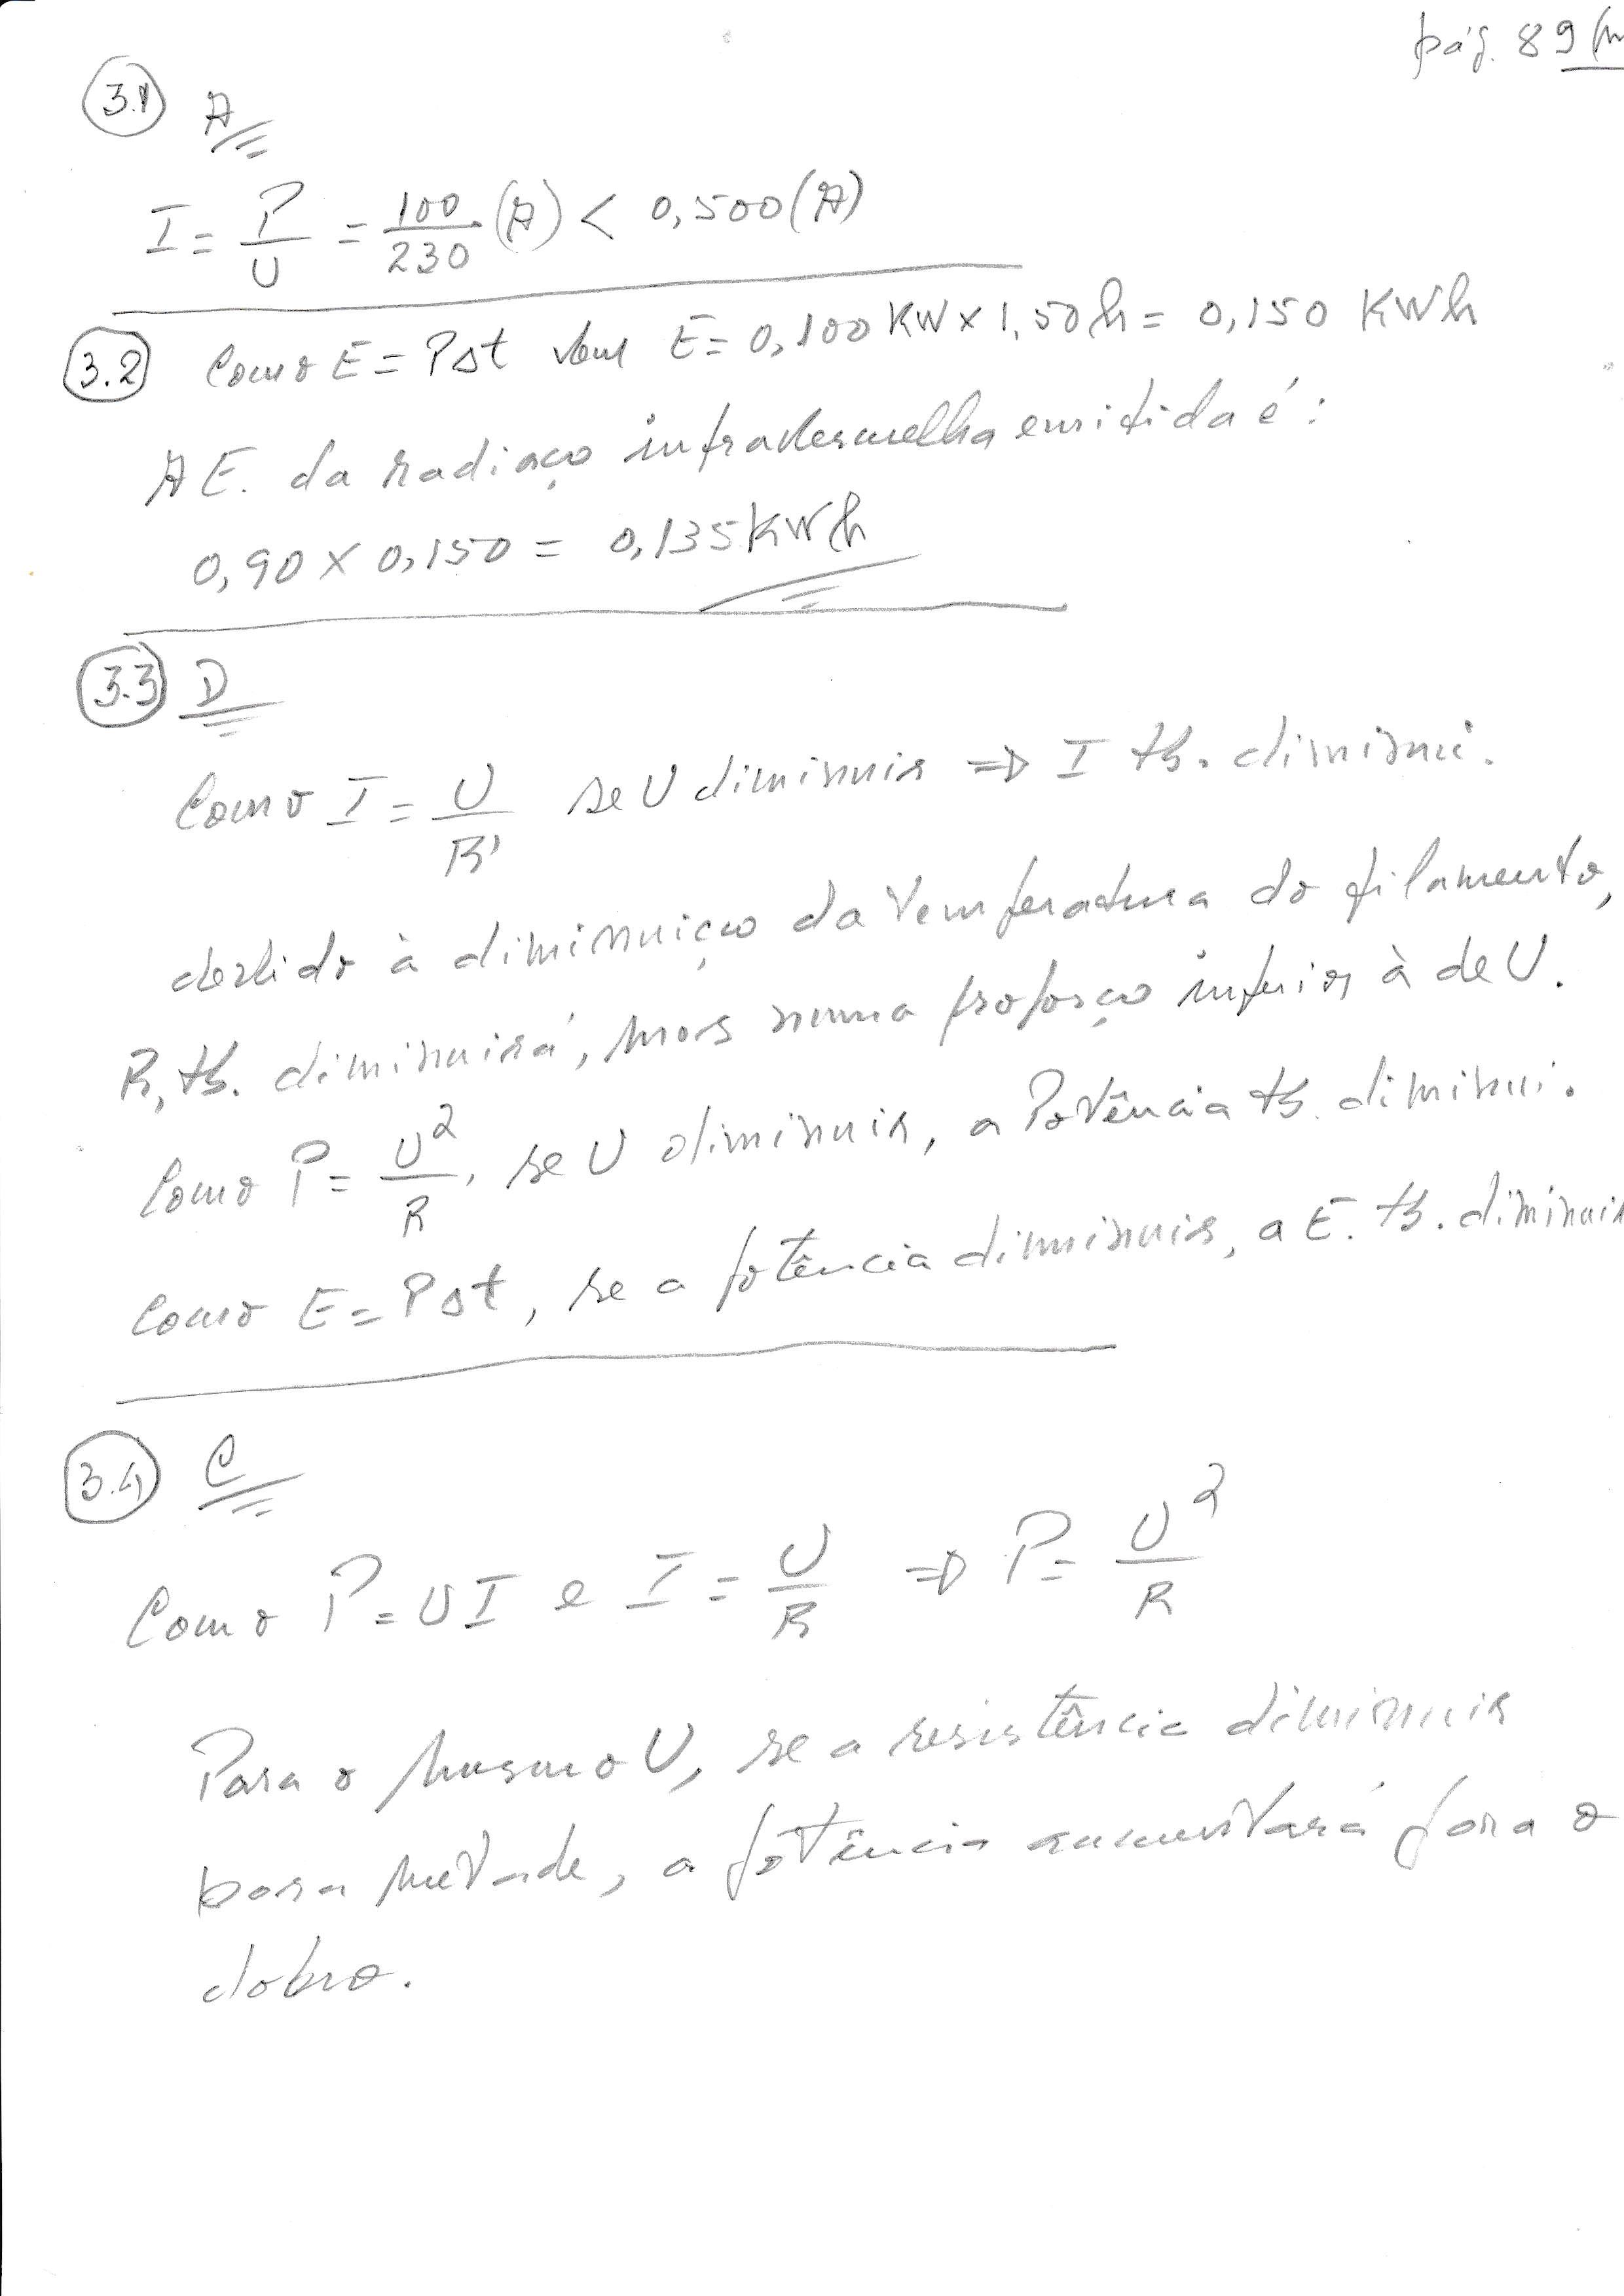 pág. 89
3.1 A
I = P/U = 100/230 (A) < 0,500 (A)
3.2 Como E = PΔt vem E = 0,100 KW × 1,50 h = 0,150 KWh
A E. da radiaço infravermelha emitida é:
0,90 × 0,150 = 0,135 KWh
3.3 D
Como I = U/R, se U diminuir ⇒ I tb. diminui.
devido à diminuiço da temperatura do filamento,
R, tb. diminuirá, mas numa proporço inferior à de U.
Como P = U²/R, se U diminuir, a Potência tb. diminui.
Como E = PΔt, se a potência diminuir, a E. tb. diminuir
3.4 C
Como P = UI e I = U/R ⇒ P = U²/R
Para o mesmo U, se a resistência diminuir
para metade, a potência aumentará para o
dobro.